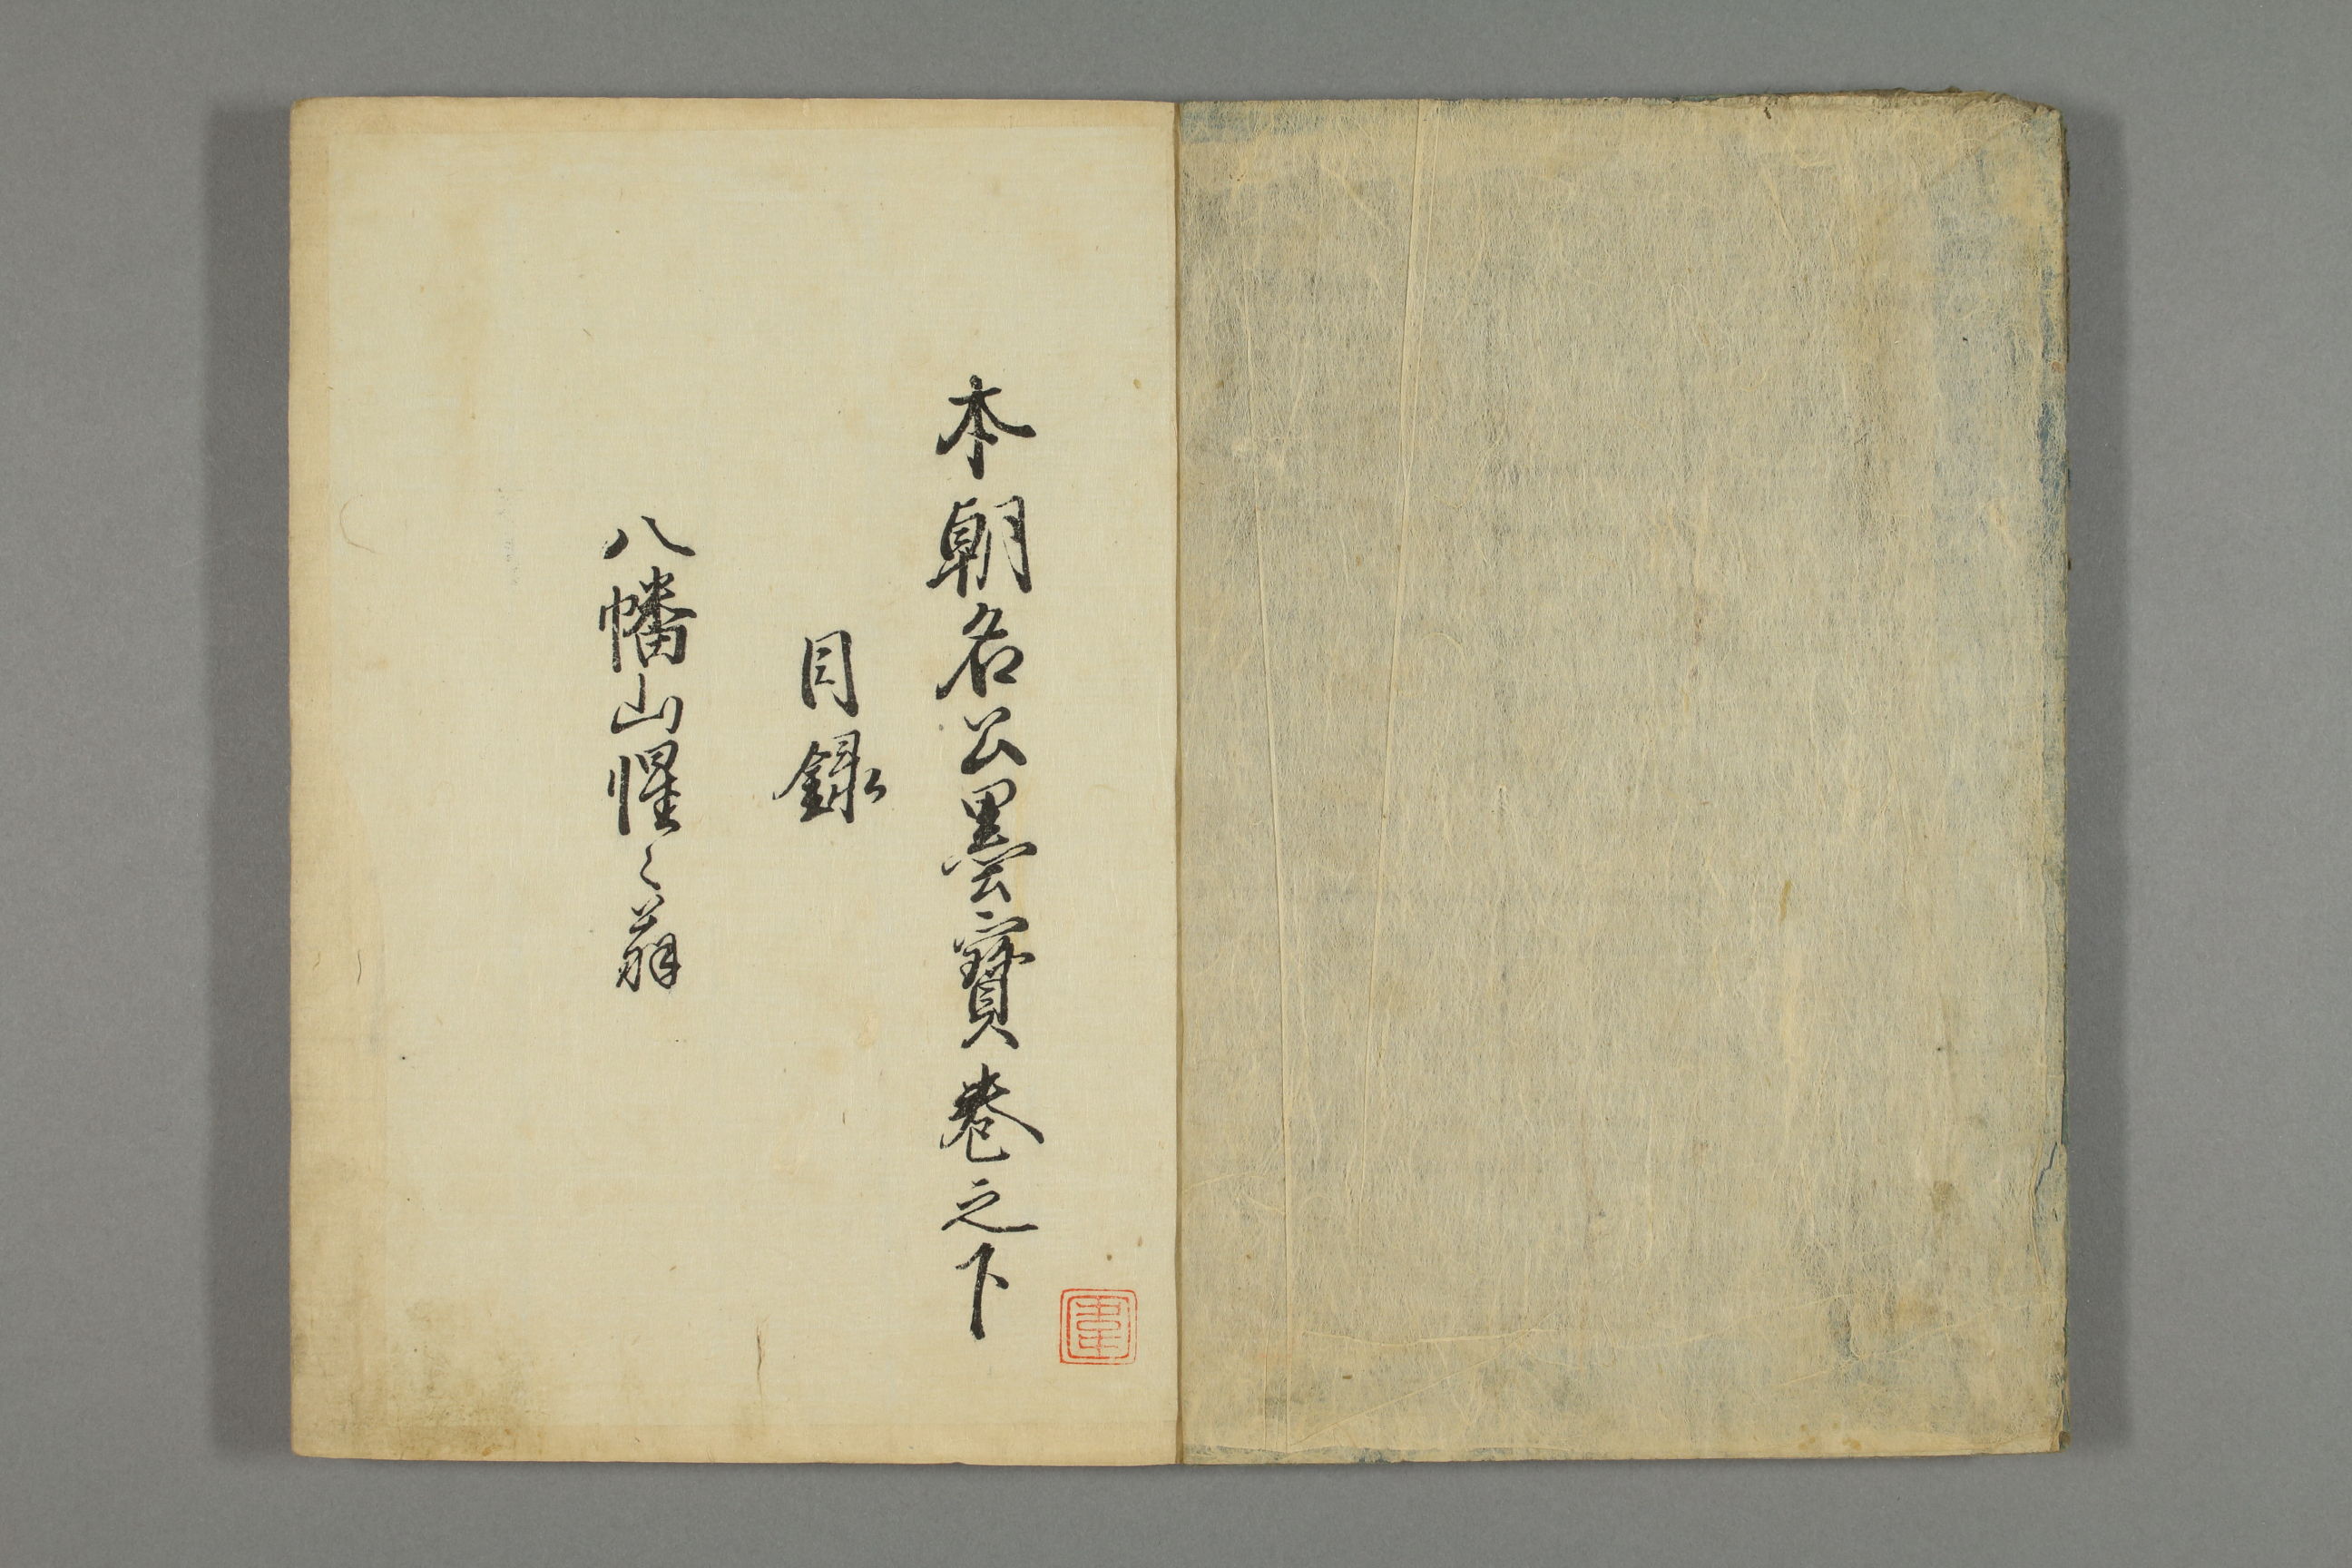 本朝名公墨寶巻之下
目録
八幡山惺々翁